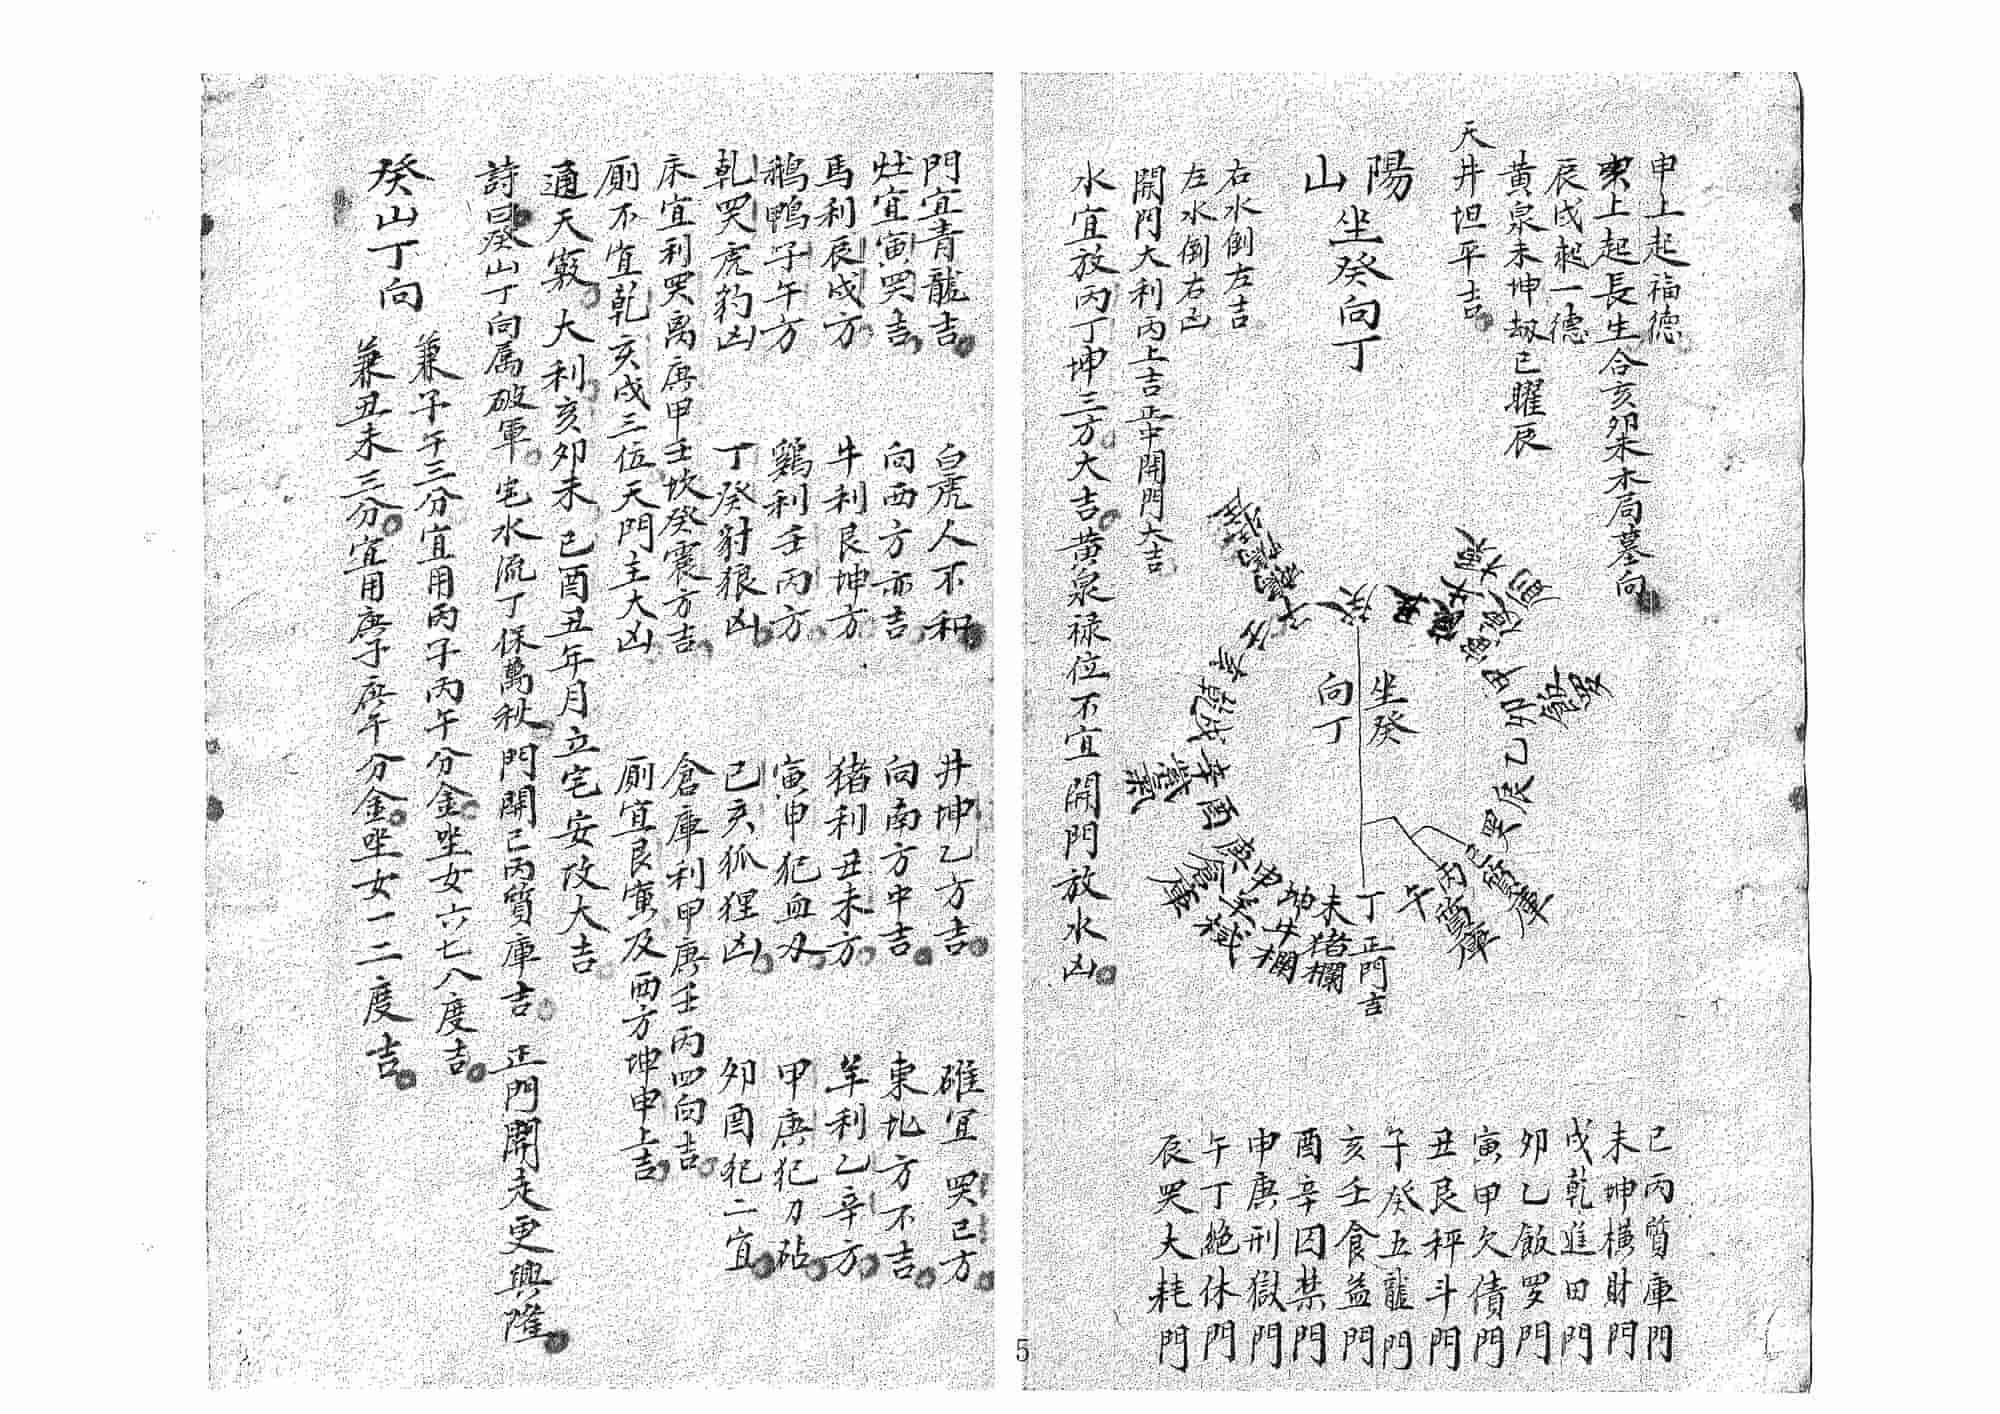 申上起福德
上起長生合亥卯未木局墓向
辰戌起一德
黃泉未坤刼巳曜辰
天井坦平吉
陽山
坐癸向丁
右水倒左吉
左水倒右凶
開門大利丙上吉正中開門大吉
水宜放丙丁坤三方大吉黃泉祿位不宜開門放水凶
坐癸
向丁
癸
甲
卯
乙
辰
巽
巳質庫
丙質庫
午
丁正門吉
未猪欄
坤牛欄
申
庚
酉
辛
戌
乾
巳丙質庫門
未坤橫財門
戌乾進田門
卯乙飯罗門
寅甲欠債門
丑艮秤斗門
午癸五龍門
亥壬食益門
酉辛囚禁門
申庚刑獄門
午丁絶休門
辰巽大耗門
5
門宜青龍吉 白虎人不和 井坤乙方吉 碓宜巽巳方
灶宜寅巽吉 向西方亦吉 向南方中吉 東北方不吉
馬利辰戌方 牛利艮坤方 猪利丑未方 羊利乙辛方
鵝鴨子午方 鷄利壬丙方 寅申犯血刃 甲庚犯刀砧
乾巽虎豹凶 丁癸豺狼凶 巳亥狐狸凶 卯酉犯二宜
床宜利巽离庚甲壬坎癸震方吉 倉庫利甲庚壬丙四向吉
厠不宜乾亥戌三位天門主大凶 厠宜艮寅及西方坤申上吉
通天竅大利亥卯未巳酉丑年月立宅安改大吉
詩曰癸山丁向属破軍宅水流丁保萬秋門開巳丙質庫吉 正門開走更興隆
癸山丁向
兼子午三分宜用丙子丙午分金坐女六七八度吉
兼丑未三分宜用庚子庚午分金坐女一二度吉